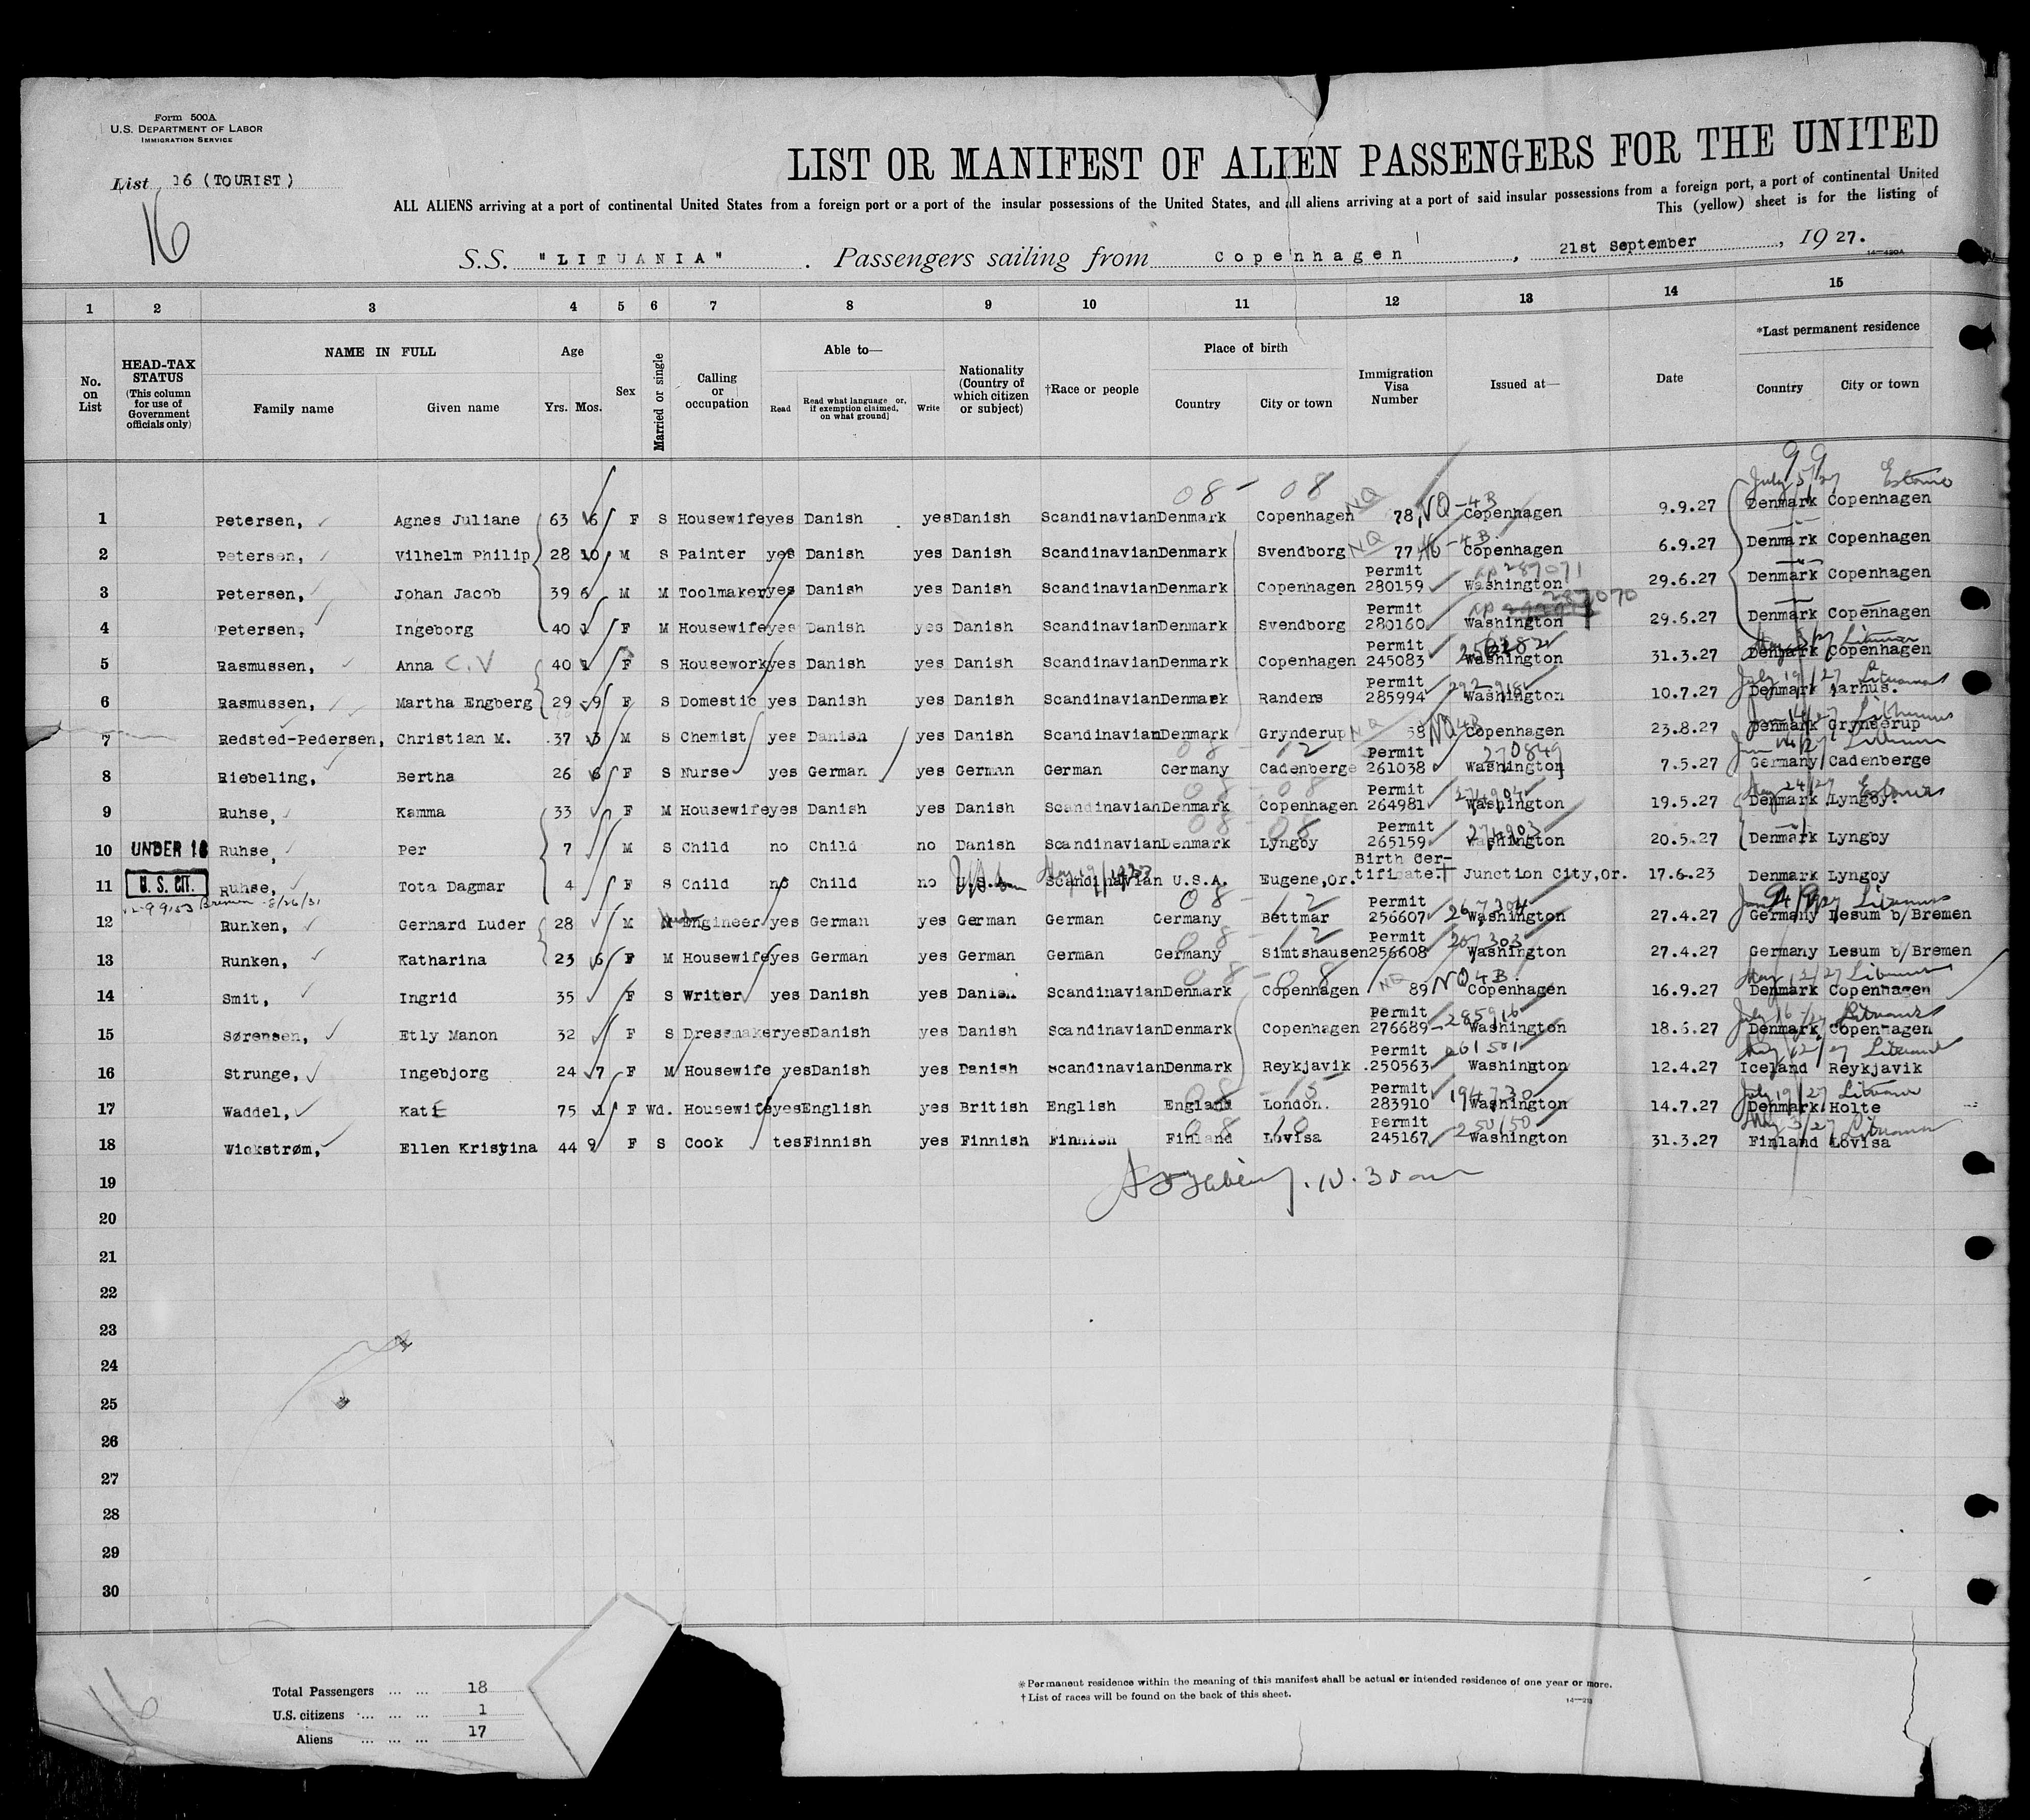 Form 500A
U.S. DEPARTMENT OF LABOR
IMMIGRATION SERVICE
List 16 (TOURIST)
16
LIST OR MANIFEST OF ALIEN PASSENGERS FOR THE UNITED
ALL ALIENS arriving at a port of continental United States from a foreign port or a port of the insular possessions of the United States, and all aliens arriving at a port of said insular possessions from a foreign port, a port of continental United
This (yellow) sheet is for the listing of
S.S. "LITUANIA". Passengers sailing from Copenhagen, 21st September, 1927.
14—420A
1 2 3 4 5 6 7 8 9 10 11 12 13 14 15
No. on List
HEAD-TAX STATUS (This column for use of Government officials only)
NAME IN FULL Family name Given name
Age Yrs. Mos.
Sex
Married or single
Calling or occupation
Able to— Read Read what language [or, if exemption claimed, on what ground] Write
Nationality (Country of which citizen or subject)
†Race or people
Place of birth Country City or town
Immigration Visa Number
Issued at—
Date
*Last permanent residence Country City or town
99
08 - 08 NQ July 5/27 Estonia
1 Petersen, Agnes Juliane 63 6 F S Housewife yes Danish yes Danish Scandinavian Denmark Copenhagen 78, NQ-4B Copenhagen 9.9.27 Denmark Copenhagen
2 Petersen, Vilhelm Philip 28 10 M S Painter yes Danish yes Danish Scandinavian Denmark Svendborg NQ 77 -4B Copenhagen 6.9.27 Denmark Copenhagen
3 Petersen, Johan Jacob 39 6 M M Toolmaker yes Danish yes Danish Scandinavian Denmark Copenhagen Permit 280159 287071 Washington 29.6.27 Denmark Copenhagen
4 Petersen, Ingeborg 40 1 F M Housewife yes Danish yes Danish Scandinavian Denmark Svendborg Permit 280160 287070 Washington 29.6.27 Denmark Copenhagen
5 Rasmussen, Anna C.V 40 1 F S Housework yes Danish yes Danish Scandinavian Denmark Copenhagen Permit 245083 Washington 31.3.27 Denmark Copenhagen
6 Rasmussen, Martha Engberg 29 9 F S Domestic yes Danish yes Danish Scandinavian Denmark Randers Permit 285994 Washington 10.7.27 July 19/27 Denmark Aarhus.
7 Redsted-Pedersen, Christian M. 37 3 M S Chemist yes Danish yes Danish Scandinavian Denmark Grynderup NQ 58 NQ 4B Copenhagen 23.8.27 Denmark Grynderup
8 Riebeling, Bertha 26 6 F S Nurse yes German yes German German Germany Cadenberge 08 - 12 Permit 261038 270849 Washington 7.5.27 Germany Cadenberge
9 Ruhse, Kamma 33 F M Housewife yes Danish yes Danish Scandinavian Denmark Copenhagen 08 - 08 Permit 264981 274904 Washington 19.5.27 May 24/27 Estonia Denmark Lyngby.
10 UNDER 16 Ruhse, Per 7 M S Child no Child no Danish Scandinavian Denmark Lyngby 08 - 08 Permit 265159 274903 Washington 20.5.27 Denmark Lyngby
11 U. S. CIT. Ruhse, Tota Dagmar 4 F S Child no Child no U.S. Scandinavian U.S.A. Eugene, Or. Birth Certificate. Junction City, Or. 17.6.23 Denmark Lyngby
Bremen 8/26/31
12 Runken, Gerhard Luder 28 M Engineer yes German yes German German Germany Bettmar 08 - 12 Permit 256607 267304 Washington 27.4.27 Germany Lesum b/Bremen
13 Runken, Katharina 23 6 F M Housewife yes German yes German German Germany Simtshausen 08 - 12 Permit 256608 267303 Washington 27.4.27 Germany Lesum b/Bremen
14 Smit, Ingrid 35 F S Writer yes Danish yes Danish Scandinavian Denmark Copenhagen 08 - 08 NQ 89 NQ 4B Copenhagen 16.9.27 May 12/27 Denmark Copenhagen
15 Sørensen, Etly Manon 32 F S Dressmaker yes Danish yes Danish Scandinavian Denmark Copenhagen Permit 276689 285916 Washington 18.6.27 July 16/27 Lituania Denmark Copenhagen
16 Strunge, Ingebjorg 24 7 F M Housewife yes Danish yes Danish Scandinavian Denmark Reykjavik Permit 250563 261501 Washington 12.4.27 May 12/27 Lituania Iceland Reykjavik
17 Waddel, Kate 75 1 F Wd. Housewife yes English yes British English England London. 08 - 15 Permit 283910 194730 Washington 14.7.27 July 19/27 Lituania Denmark Holte
18 Wickstrøm, Ellen Kristina 44 9 F S Cook tes Finnish yes Finnish Finnish Finland Lovisa 08 10 Permit 245167 250150 Washington 31.3.27 Finland Lovisa
19
20
21
22
23
24
25
26
27
28
29
30
16
Total Passengers ... ... 18
U.S. citizens ... ... ... 1
Aliens ... ... ... 17
*Permanent residence within the meaning of this manifest shall be actual or intended residence of one year or more.
†List of races will be found on the back of this sheet.